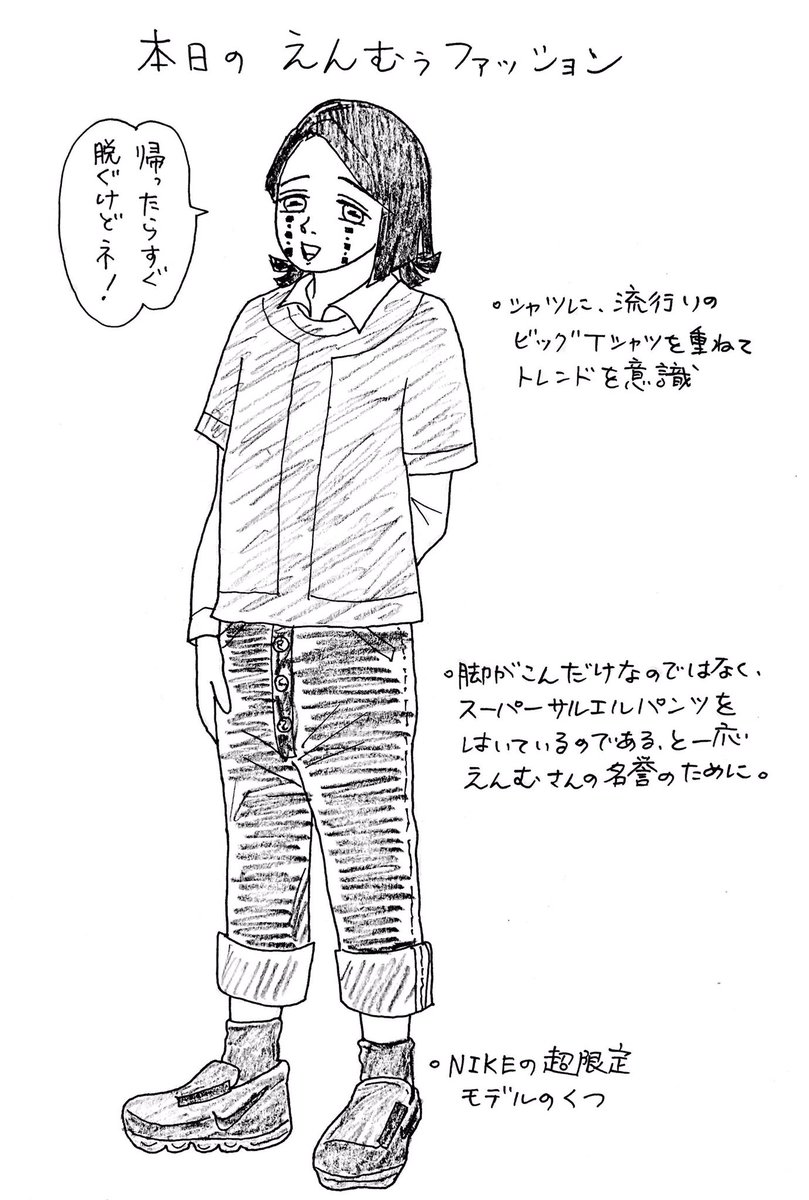 本日の えんむぅファッション
帰ったらすぐ
脱ぐけどネ!
○シャツに、流行りの
ビッグTシャツを重ねて
トレンドを意識
○脚がこんだけなのではなく、
スーパーサルエルパンツを
はいているのである、と一応
えんむさんの名誉のために。
○NIKEの超限定
モデルのくつ